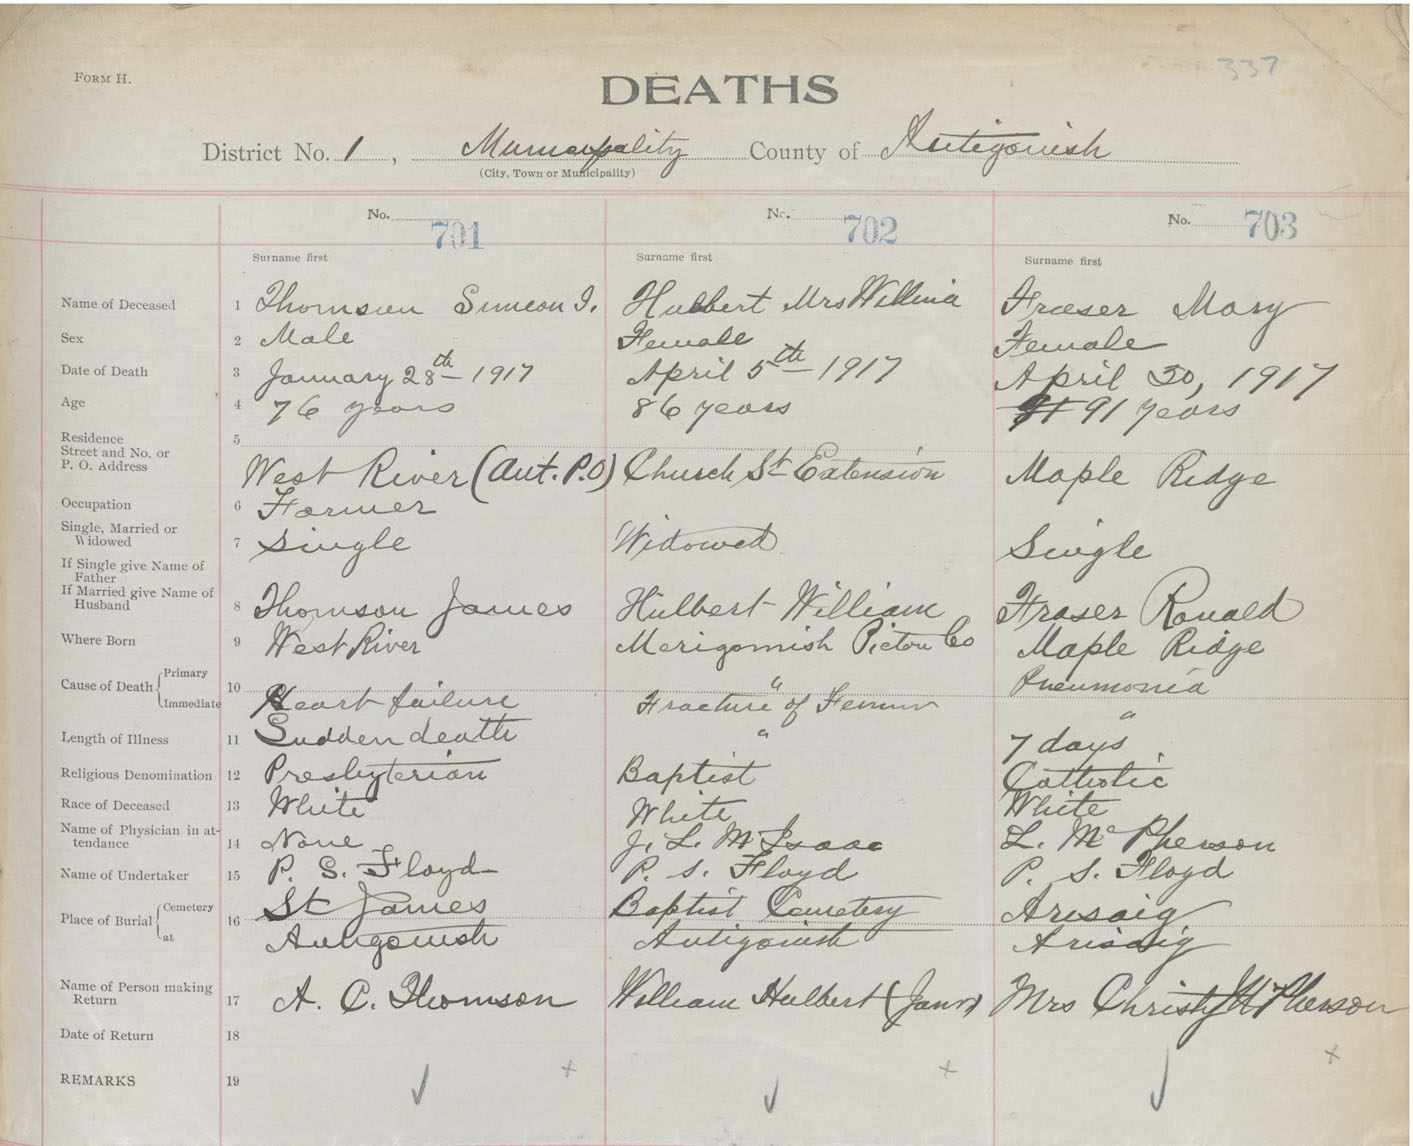 FORM H.
337
DEATHS
District No. 1, Municipality County of Antigonish
(City, Town or Municipality)
No. 701 No. 702 No. 703
Surname first Surname first Surname first
Name of Deceased 1 Thomson Simeon I. Hulbert Mrs Willina Fraser Mary
Sex 2 Male Female Female
Date of Death 3 January 28th 1917 April 5th 1917 April 30, 1917
Age 4 76 years 86 years 91 91 years
Residence 5
Street and No. or
P. O. Address West River (Ant. P.O) Church St Extension Maple Ridge
Occupation 6 Farmer
Single, Married or
Widowed 7 Single Widowed Single
If Single give Name of
Father
If Married give Name of
Husband 8 Thomson James Hulbert William Fraser Ronald
Where Born 9 West River Merigomish Pictou Co Maple Ridge
Cause of Death Primary 10 " Pneumonia
Immediate Heart failure Fracture of Femur "
Length of Illness 11 Sudden death " 7 days
Religious Denomination 12 Presbyterian Baptist Catholic
Race of Deceased 13 White White White
Name of Physician in at-
tendance 14 None J. L. McIsaac L. McPherson
Name of Undertaker 15 P. S. Floyd P. S. Floyd P. S. Floyd
Place of Burial Cemetery 16 St James Baptist Cemetery Arisaig
at Antigonish Antigonish Arisaig
Name of Person making
Return 17 A. C. Thomson William Hulbert Mrs Christy McPherson
Date of Return 18
REMARKS 19